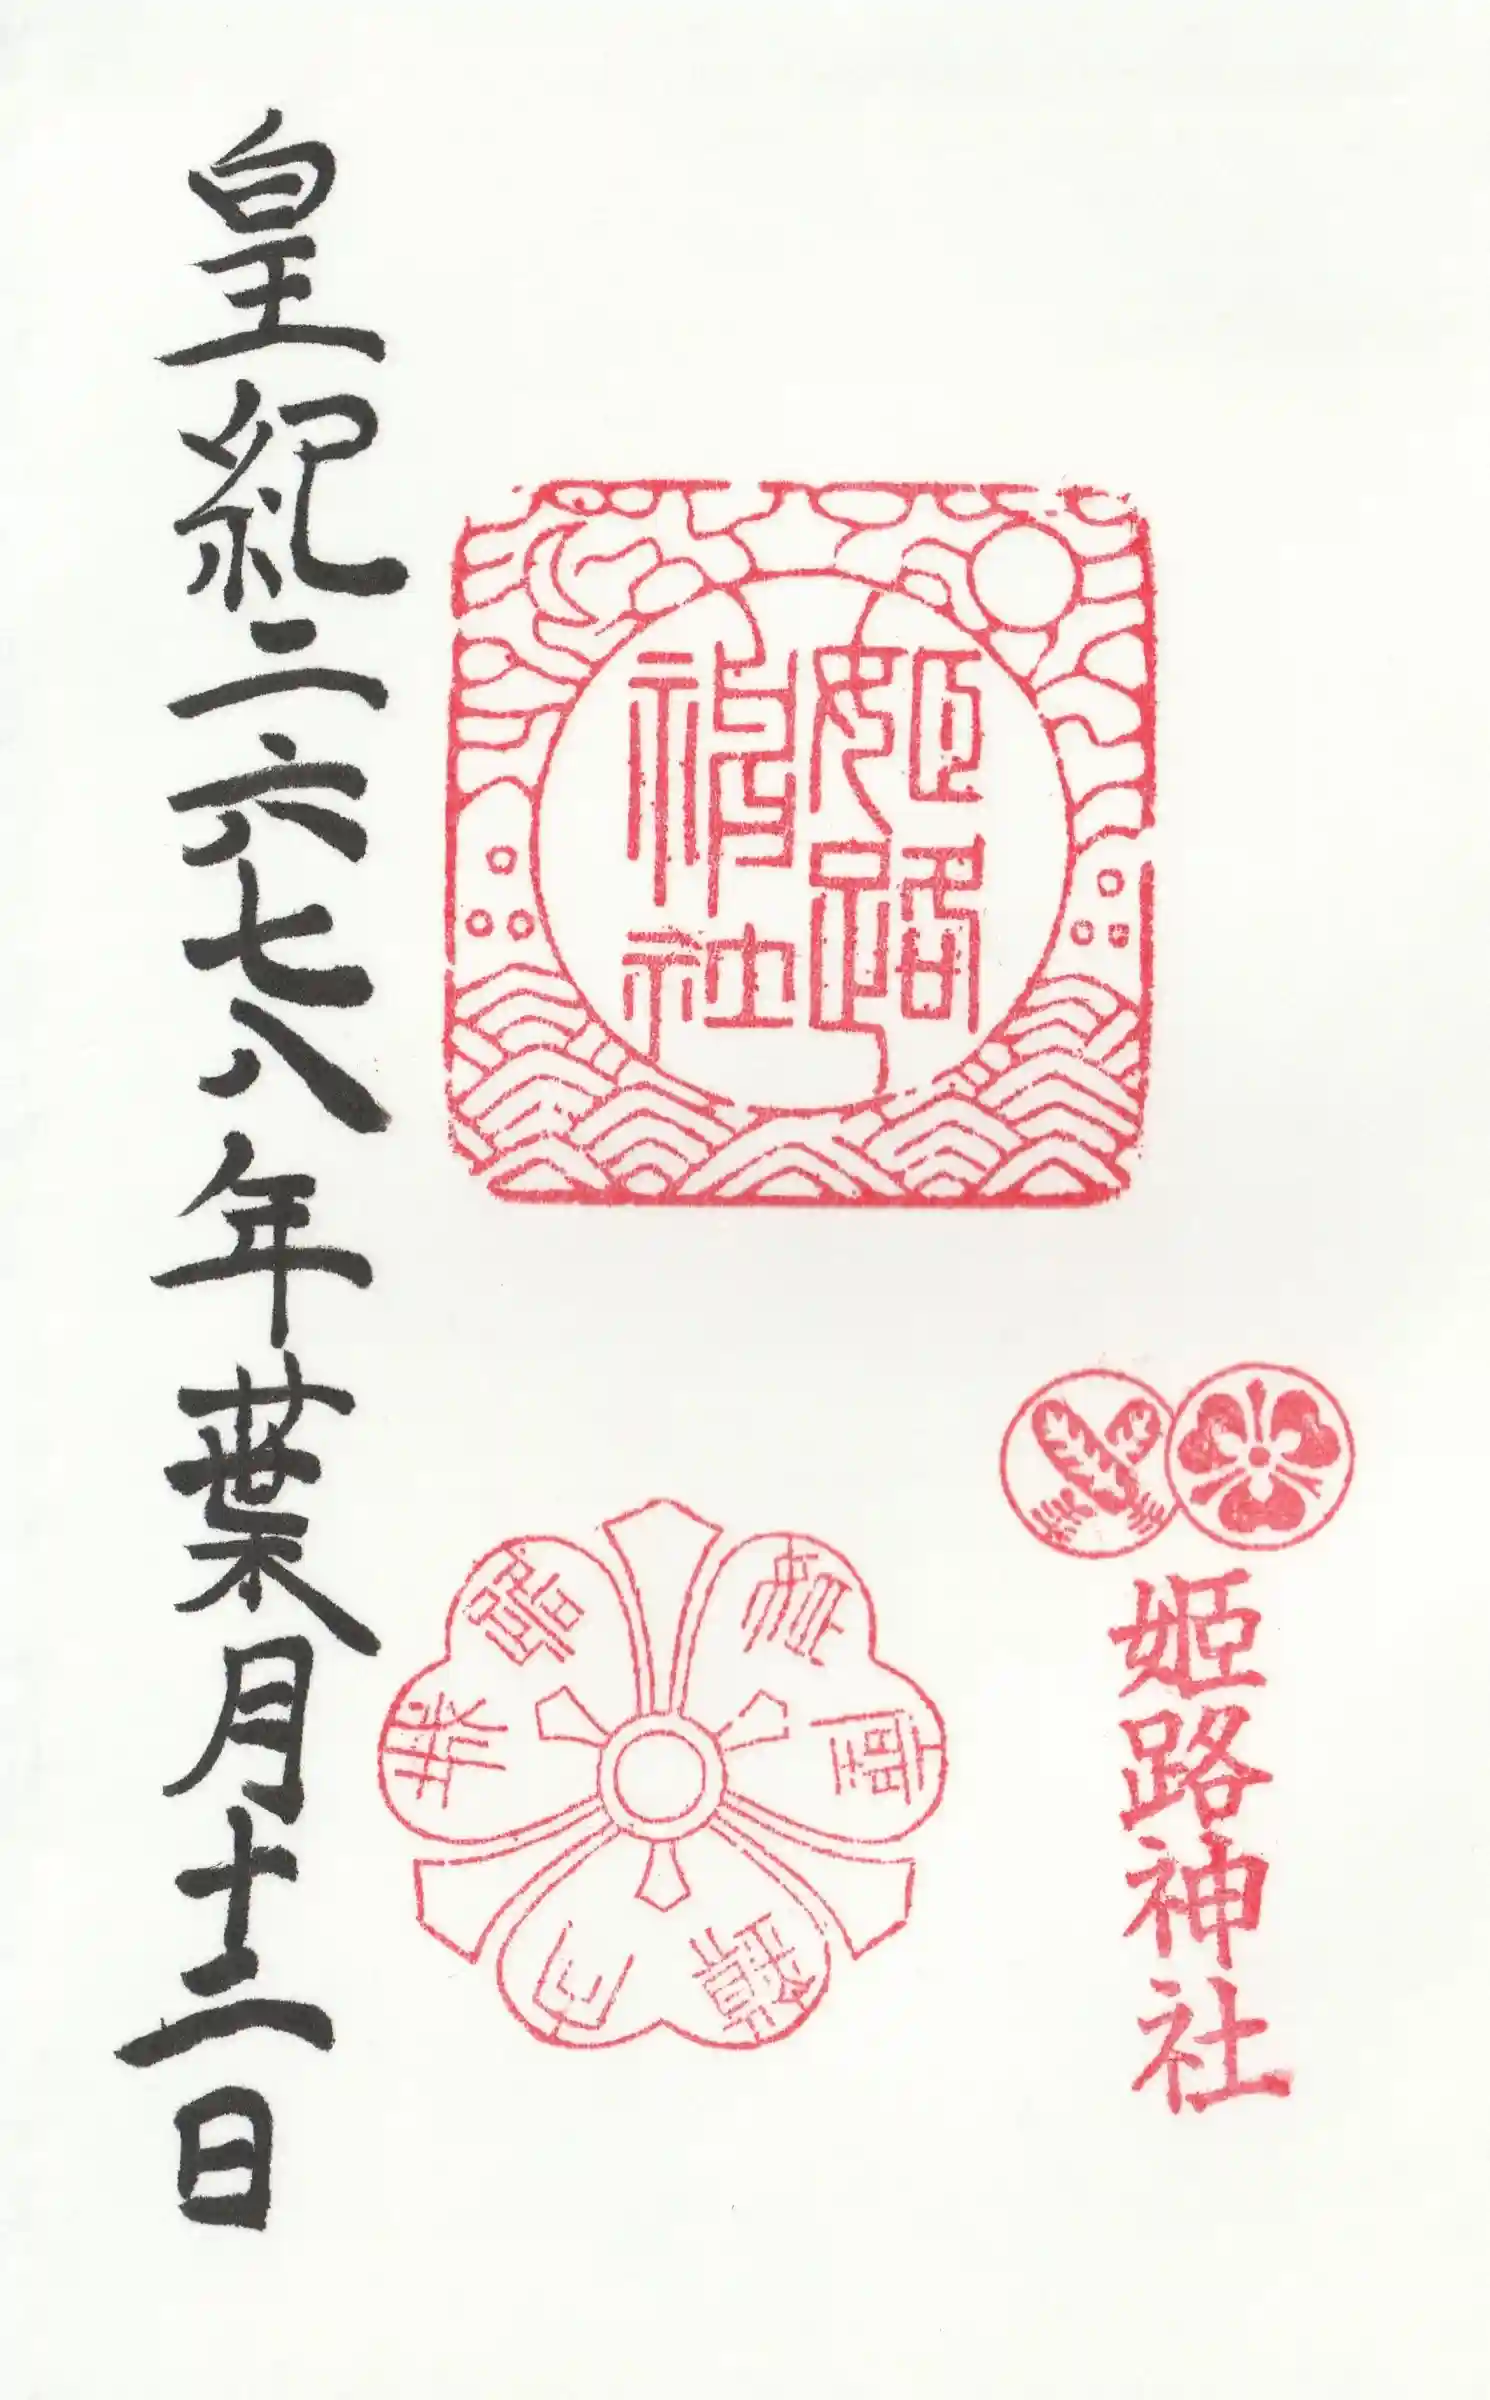 姫路神社
姫路
神社
皇紀二六七八年葉月十二日